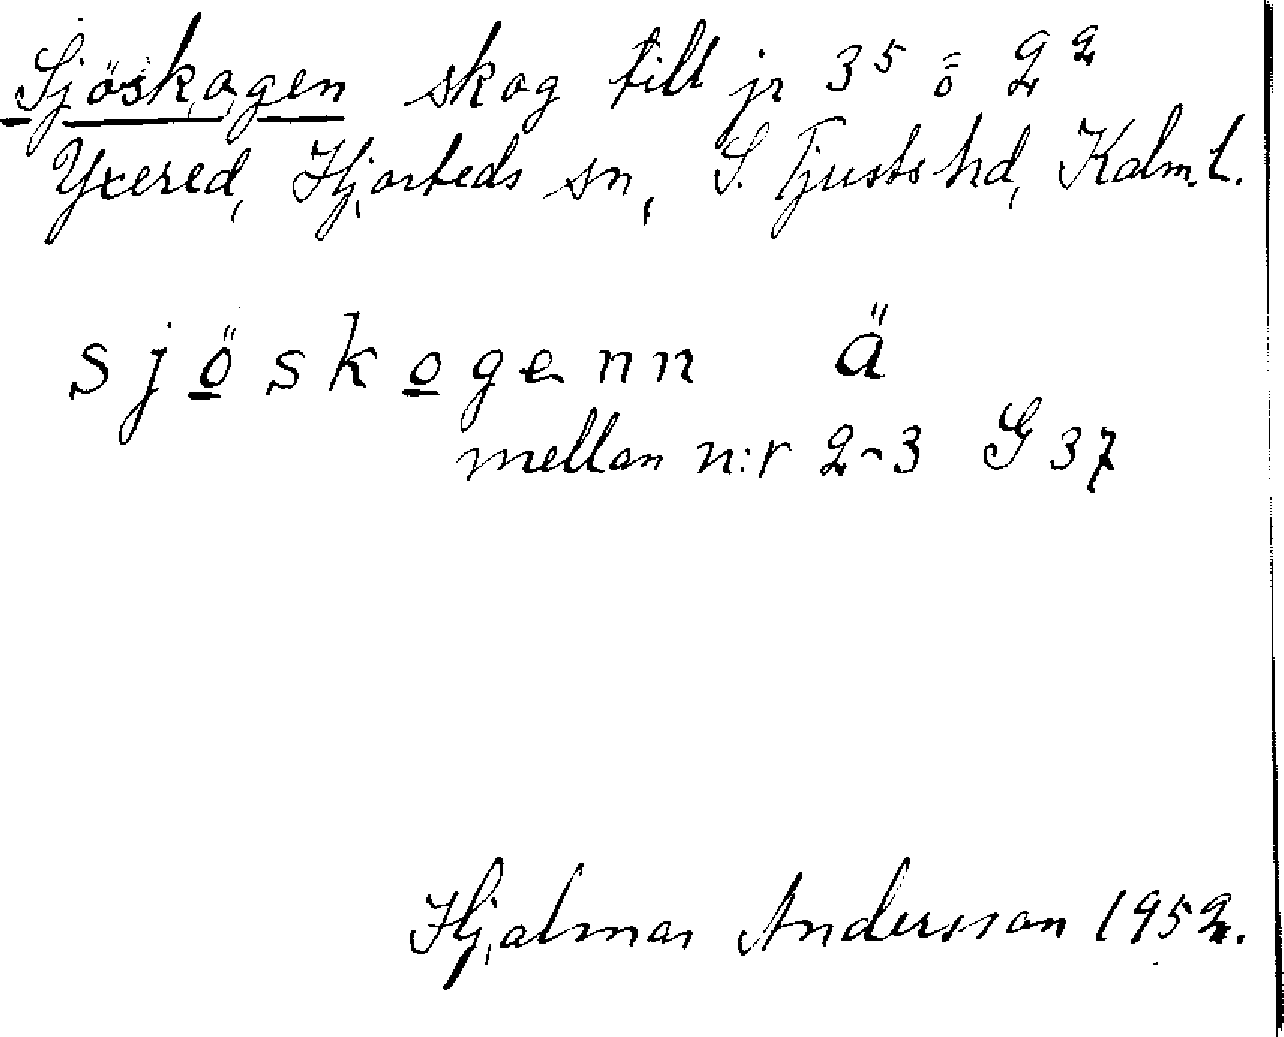 Sjöskogen skog till jr 3⁵ ö 2²
Yxered, Hjorteds sn, S. Tjusts hd, Kalm. l.
sjöskogenn ä
mellan n:r 2-3 G 37
Hjalmar Andersson 1952.